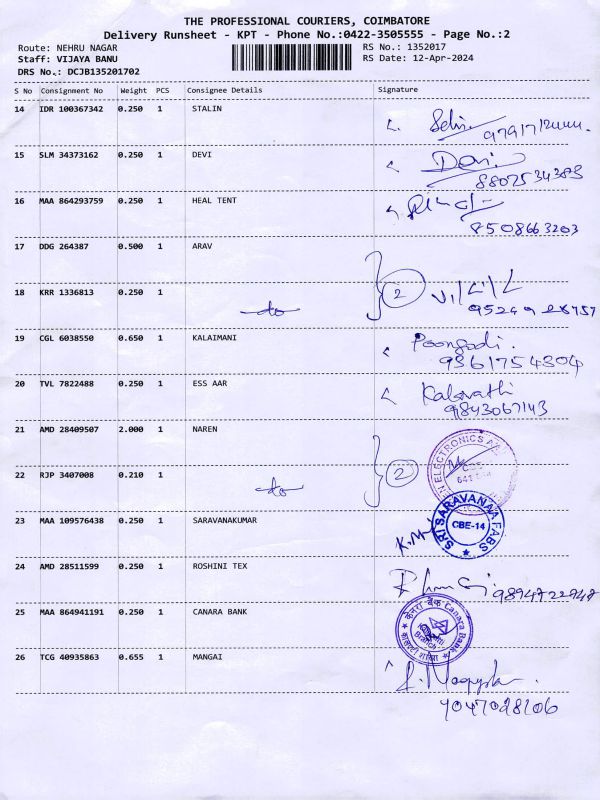 THE PROFESSIONAL COURIERS, COIMBATORE
Delivery Runsheet - KPT - Phone No.:0422-3505555 - Page No.:2
Route: NEHRU NAGAR
RS No.: 1352017
Staff: VIJAYA BANU
RS Date: 12-Apr-2024
DRS No.: DCJB135201702
S No Consignment No Weight PCS Consignee Details Signature
14 IDR 100367342 0.250 1 STALIN
15 SLM 34373162 0.250 1 DEVI Devi
8807534383
16 MAA 864293759 0.250 1 HEAL TENT
8508663203
17 DDG 264387 0.500 1 ARAV
18 KRR 1336813 0.250 1 do 2
19 CGL 6038550 0.650 1 KALAIMANI Poongodi.
9361754304
20 TVL 7822488 0.250 1 ESS AAR Kalavathi
9843067143
21 AMD 28409507 2.000 1 NAREN
ELECTRONICS
22 RJP 3407008 0.210 1 do 2
23 MAA 109576438 0.250 1 SARAVANAKUMAR
SRI SARAVANAA FABS
CBE-14
24 AMD 28511599 0.250 1 ROSHINI TEX
9894722747
25 MAA 864941191 0.250 1 CANARA BANK
केनरा बैंक Canara Bank
Branch
26 TCG 40935863 0.655 1 MANGAI
9047028106